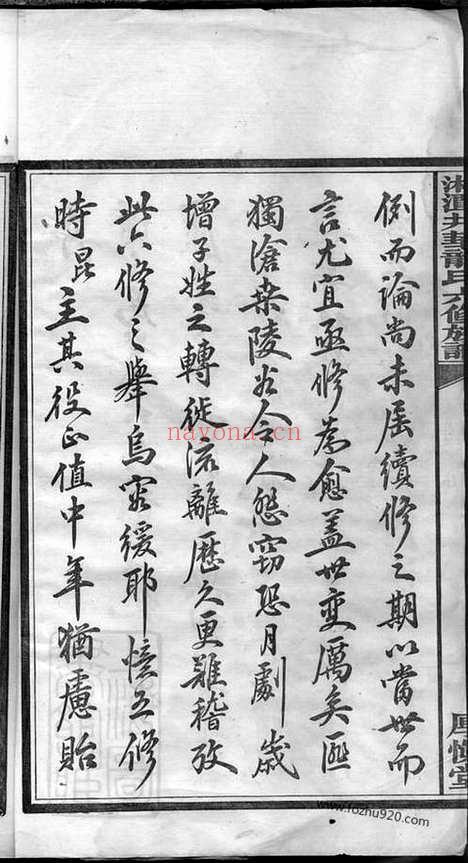 湘潭九塾龍氏六修族譜
厚惇堂
例而論尚未屆續修之期以當世而
言尤宜亟修為愈蓋世變厲矣匪
獨滄桑陵谷令人怒竊恐月劇歲
增子姓之轉徙流離歷久更難稽攷
此六修之舉烏容緩耶憶五修
時昆主其役正值中年猶慮貽
nayona.cn
www.fozhu920.com